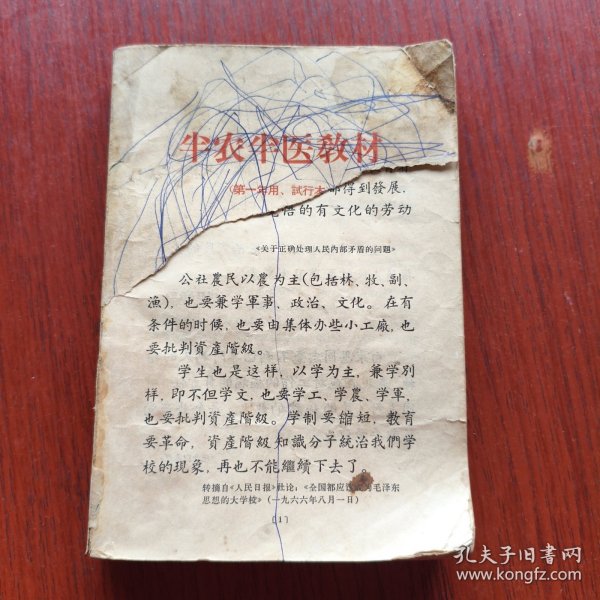 半农半医教材
第一年用、試行本
得到發展,
的有文化的劳动
《关于正确处理人民內部矛盾的問題》
公社農民以農为主(包括林、牧、副、
漁),也要兼学軍事、政治、文化。在有
条件的时候,也要由集体办些小工廠,也
要批判資產階級。
学生也是这样,以学为主,兼学别
样,即不但学文,也要学工、学農、学軍,
也要批判資產階級。学制要縮短,教育
要革命,資產階級知識分子統治我們学
校的現象,再也不能繼續下去了。
转摘自《人民日报》社论:《全国都应该成为毛泽东
思想的大学校》(一九六六年八月一日)
[1]
孔夫子旧书网
www.kongfz.com